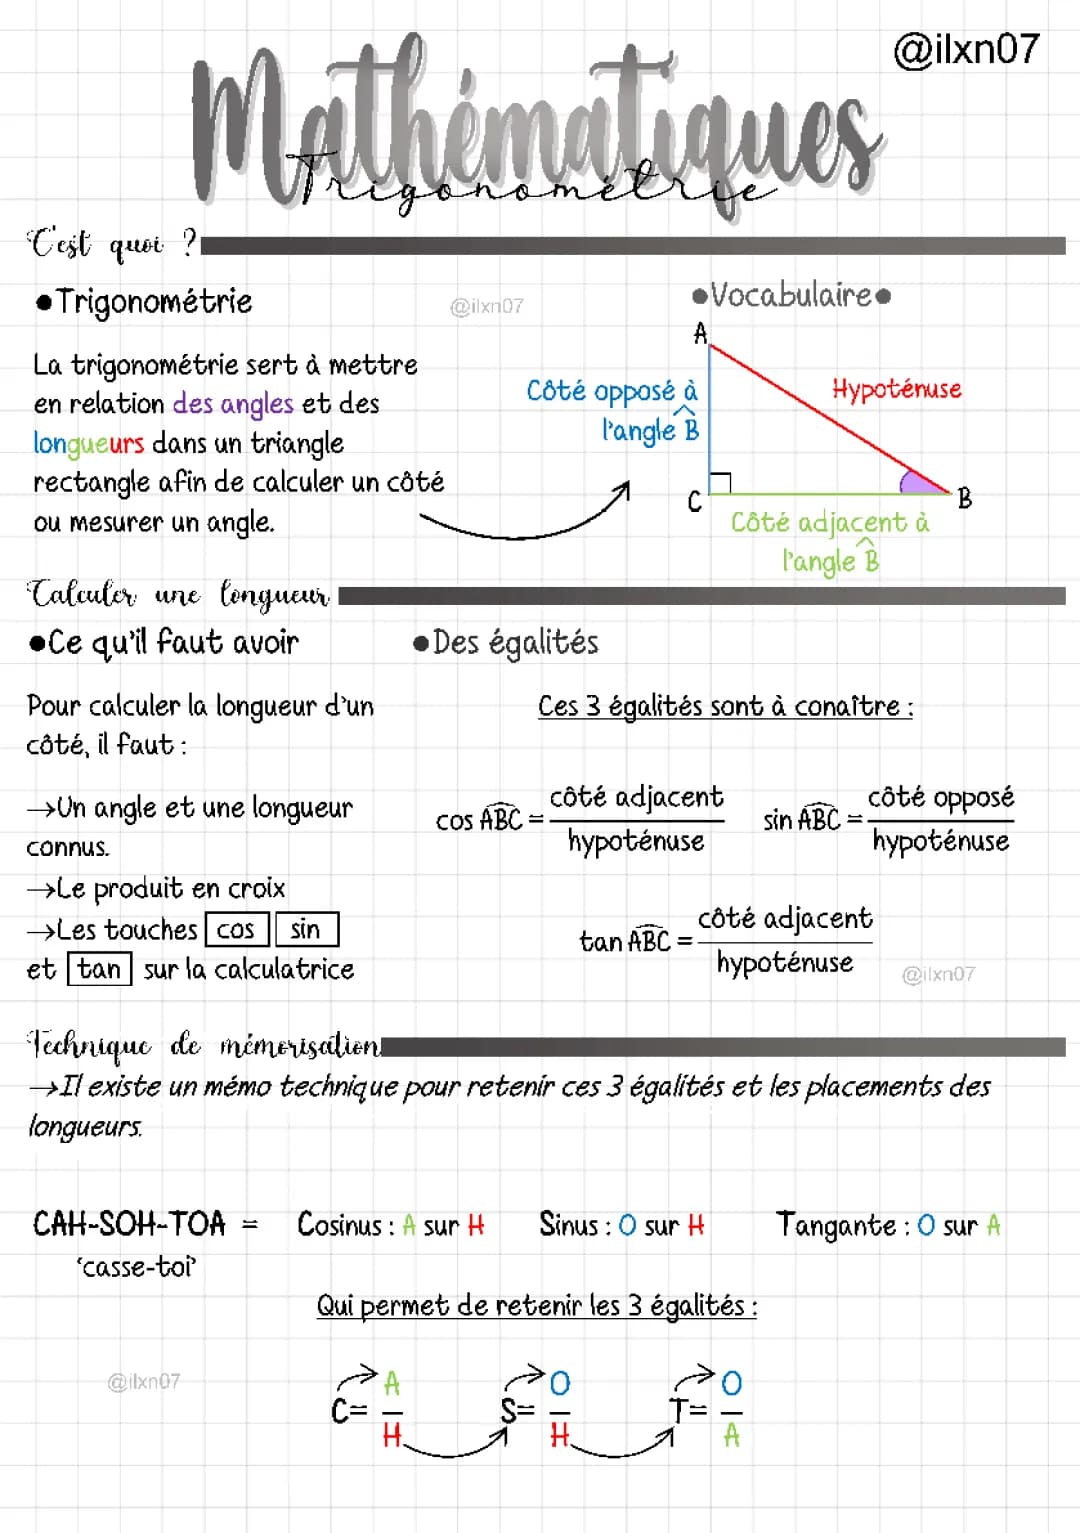 @ilxn07
Mathématiques
Trigonométrie
C'est quoi ?
●Trigonométrie
@ilxn07
La trigonométrie sert à mettre
en relation des angles et des
longueurs dans un triangle
rectangle afin de calculer un côté
ou mesurer un angle.
●Vocabulaire●
A
Côté opposé à
l'angle B̂
Hypoténuse
C
B
Côté adjacent à
l'angle B̂
Calculer une longueur
●Ce qu'il faut avoir
Pour calculer la longueur d'un
côté, il faut :
→Un angle et une longueur
connus.
→Le produit en croix
→Les touches cos sin
et tan sur la calculatrice
●Des égalités
Ces 3 égalités sont à conaître :
cos ABC = côté adjacent
hypoténuse
sin ABC = côté opposé
hypoténuse
tan ABC = côté adjacent
hypoténuse
@ilxn07
Technique de mémorisation
→Il existe un mémo technique pour retenir ces 3 égalités et les placements des
longueurs.
CAH-SOH-TOA = Cosinus : A sur H Sinus : O sur H Tangante : O sur A
'casse-toi'
Qui permet de retenir les 3 égalités :
@ilxn07
C= A
H
S= O
H
T= O
A